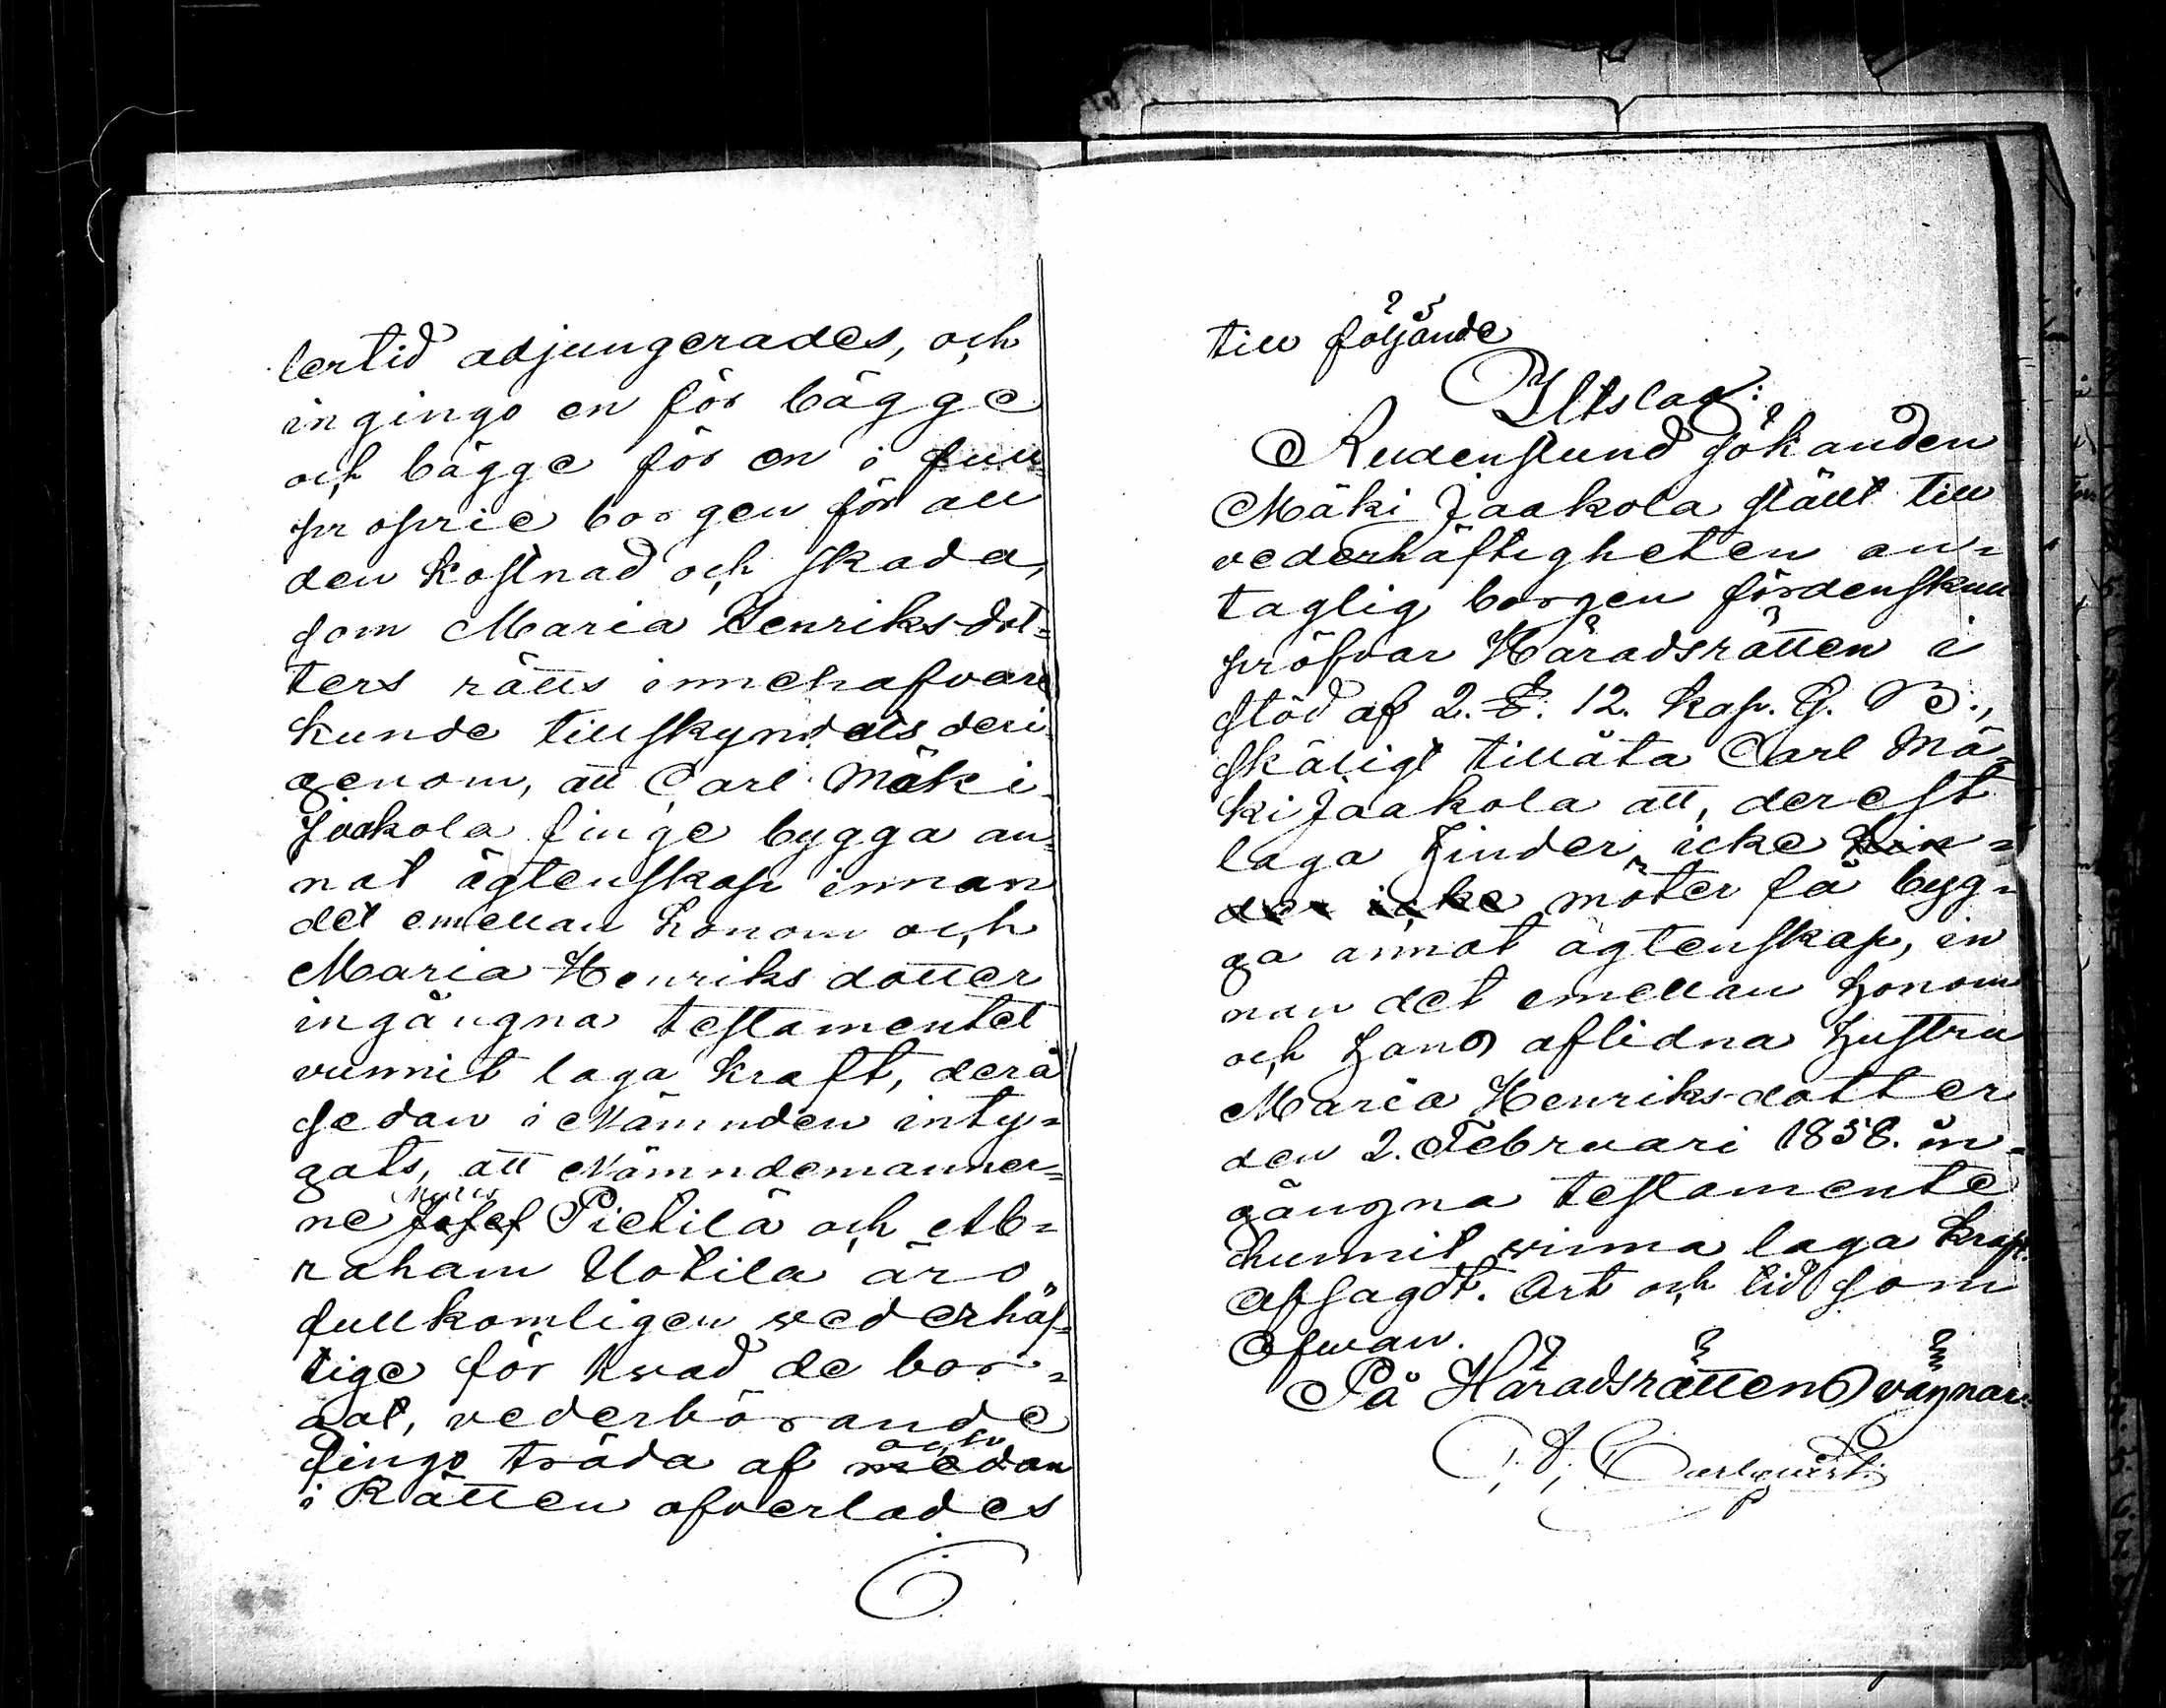 lertid adjungerades, och
ingingo en för bägge
och bägge för en i full
proprie borgen för all
den kostnad och skada,
som Maria Henriks dot=
ters rätts innehafvare
kunde tillskyndats deri=
genom, att Carl Mäki
Jaakola finge bygga an=
nat ägtenskap innan
det emellan honom och
Maria Henriks dotter
ingångna testamentet
vunnit laga kraft, derå
sedan i Nämnden inty=
gats, att Nämndemänner=
ne Josef Pietilä och Ab=
raham Uotila äro
fullkomligen vederhäf=
tige för hvad de bor=
gat, vederbörande
fingo träda af medan
i Rätten öfverlades
till följande
Utslag:
Alldenstund sökanden
Mäki Jaakola stält till
vederhäftigheten an=
taglig borgen fördenskull
pröfvar Häradsrätten i
stöd af 2. §. 12. Kap. G. B.,
skäligt tillåta Carl Mä=
ki Jaakola att, derest
laga hinder icke hin=
der icke möter få byg=
ga annat ägtenskap, in
nan det emellan honom
och hans aflidna hustru
Maria Henriks dotter
den 2. Februari 1858. in=
gångna testamente
hunnit vinna laga kraft.
Afsagdt. Ort och tid som
Ofvan.
På Häradsrättens vägnar: